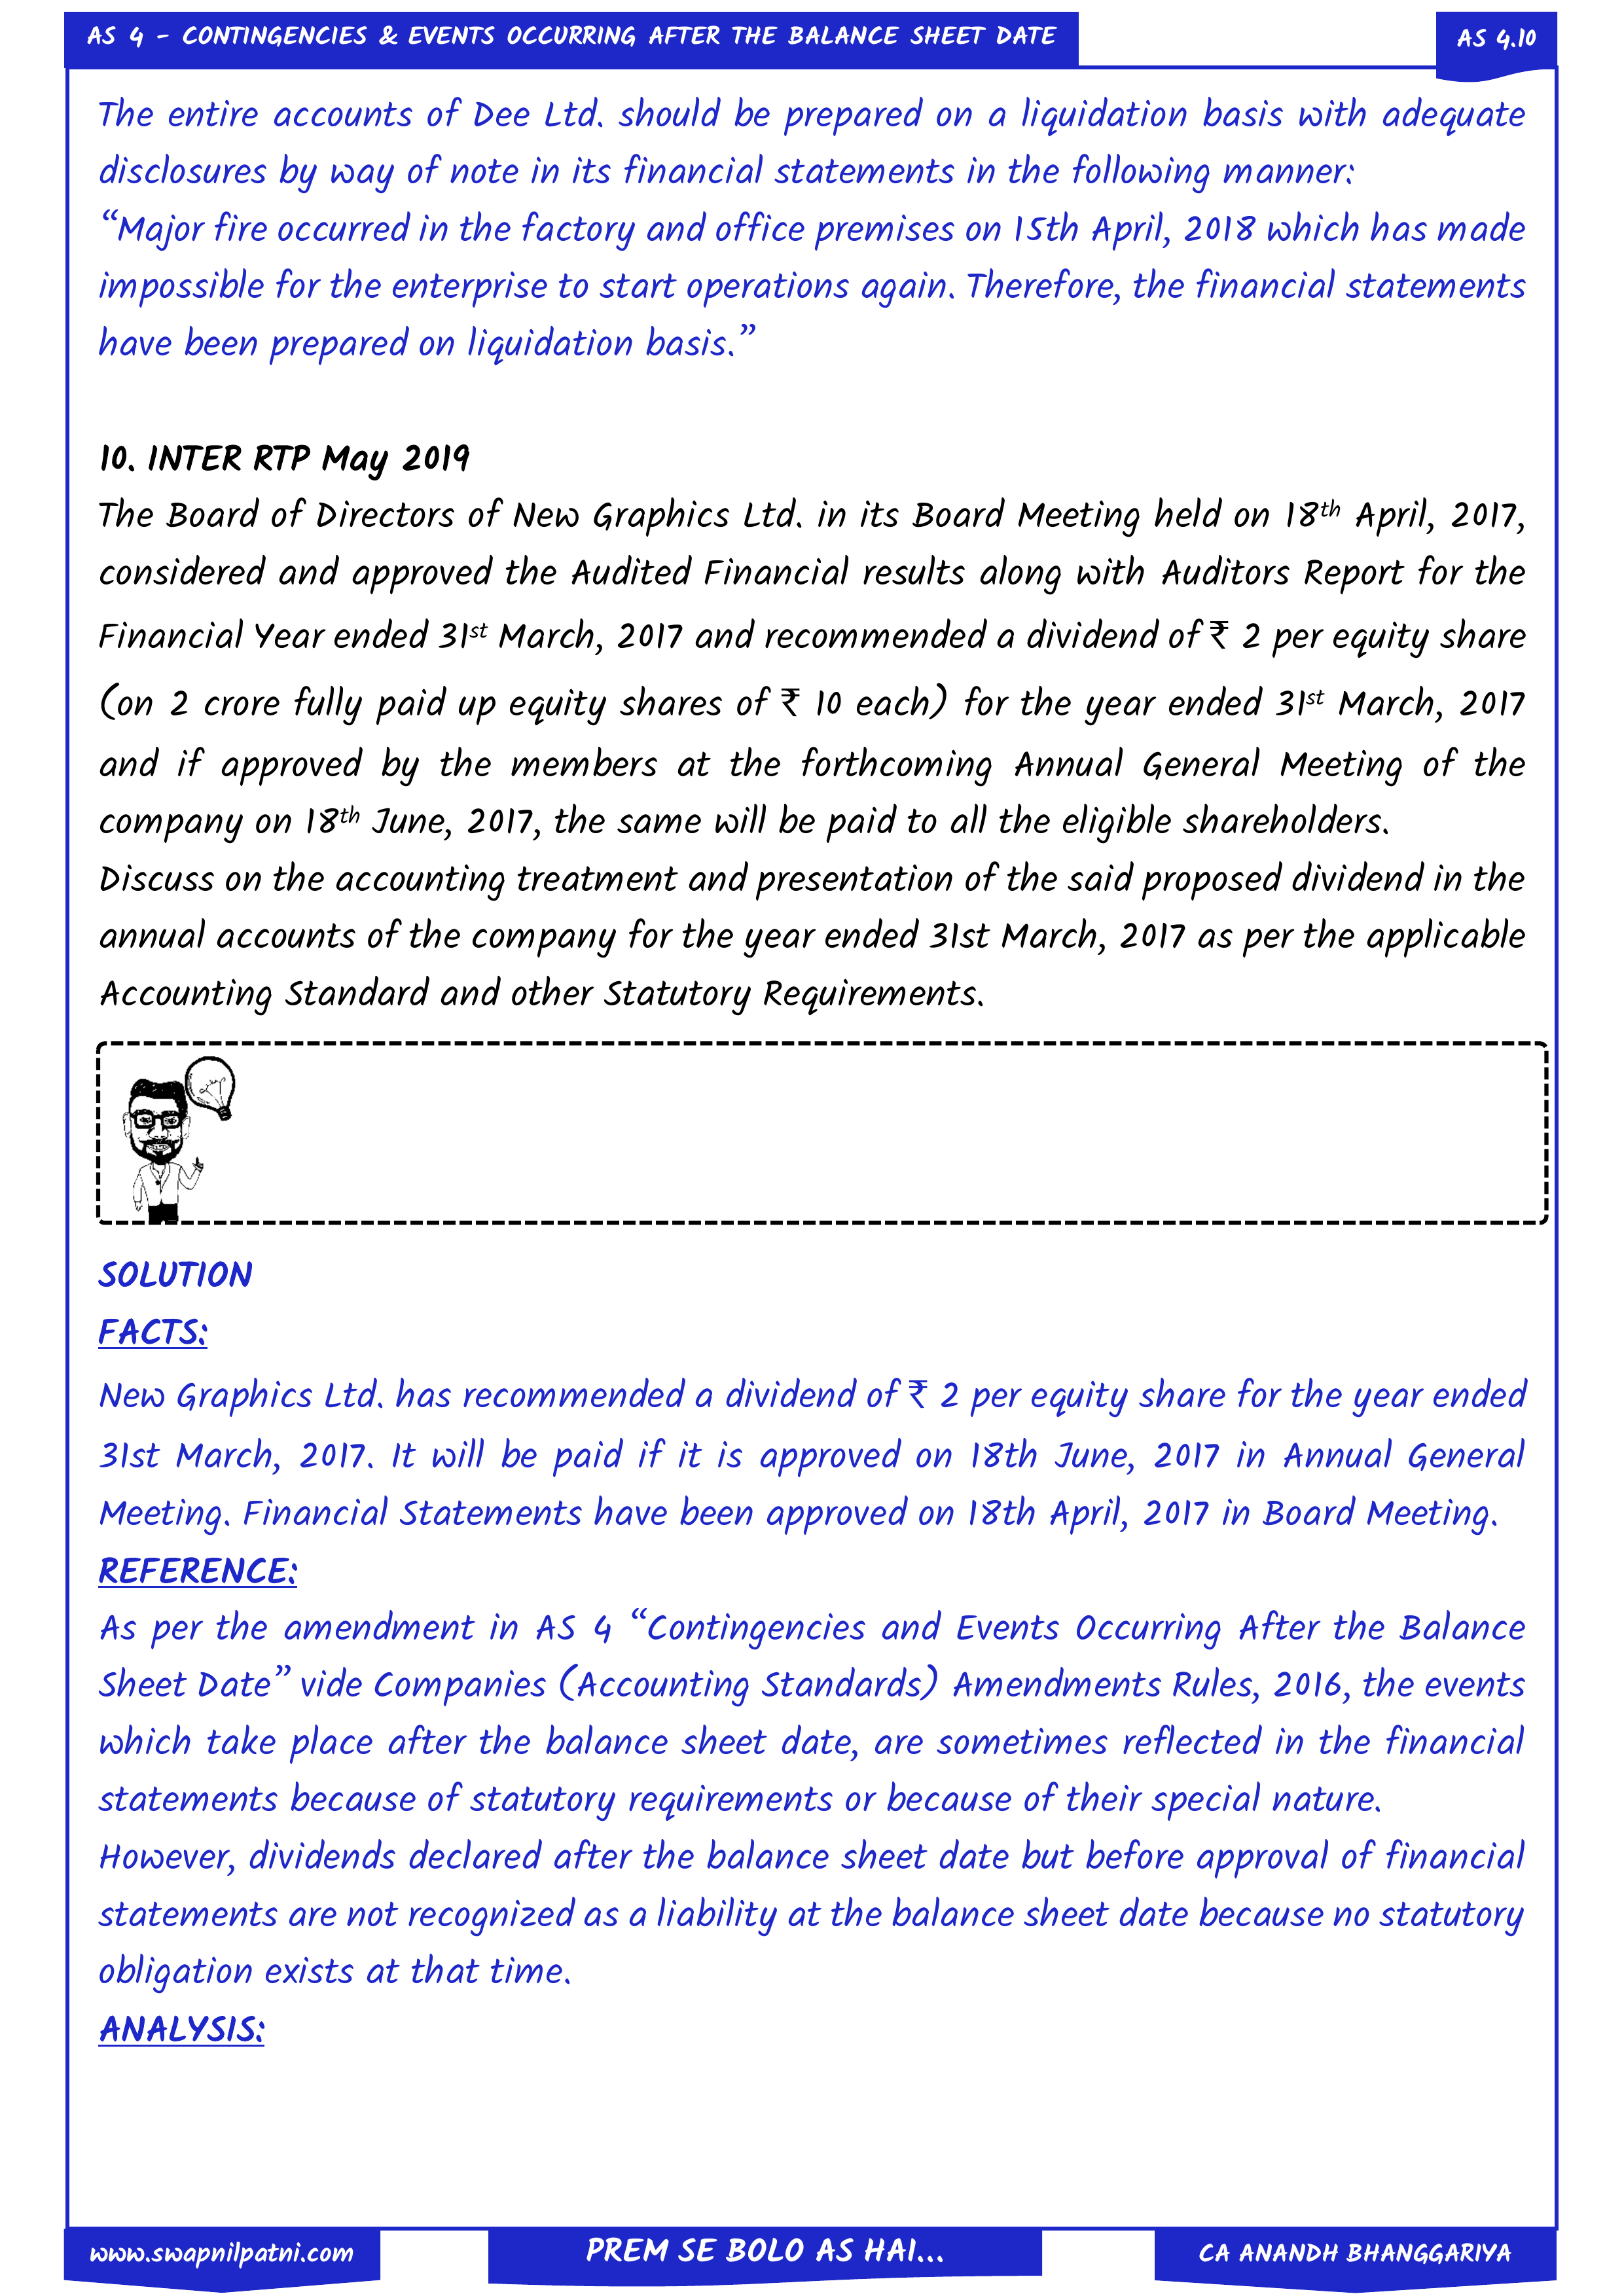 AS 4 - CONTINGENCIES & EVENTS OCCURRING AFTER THE BALANCE SHEET DATE
AS 4.10
The entire accounts of Dee Ltd. should be prepared on a liquidation basis with adequate
disclosures by way of note in its financial statements in the following manner:
“Major fire occurred in the factory and office premises on 15th April, 2018 which has made
impossible for the enterprise to start operations again. Therefore, the financial statements
have been prepared on liquidation basis.”
10. INTER RTP May 2019
The Board of Directors of New Graphics Ltd. in its Board Meeting held on 18th April, 2017,
considered and approved the Audited Financial results along with Auditors Report for the
Financial Year ended 31st March, 2017 and recommended a dividend of ₹ 2 per equity share
(on 2 crore fully paid up equity shares of ₹ 10 each) for the year ended 31st March, 2017
and if approved by the members at the forthcoming Annual General Meeting of the
company on 18th June, 2017, the same will be paid to all the eligible shareholders.
Discuss on the accounting treatment and presentation of the said proposed dividend in the
annual accounts of the company for the year ended 31st March, 2017 as per the applicable
Accounting Standard and other Statutory Requirements.
SOLUTION
FACTS:
New Graphics Ltd. has recommended a dividend of ₹ 2 per equity share for the year ended
31st March, 2017. It will be paid if it is approved on 18th June, 2017 in Annual General
Meeting. Financial Statements have been approved on 18th April, 2017 in Board Meeting.
REFERENCE:
As per the amendment in AS 4 “Contingencies and Events Occurring After the Balance
Sheet Date” vide Companies (Accounting Standards) Amendments Rules, 2016, the events
which take place after the balance sheet date, are sometimes reflected in the financial
statements because of statutory requirements or because of their special nature.
However, dividends declared after the balance sheet date but before approval of financial
statements are not recognized as a liability at the balance sheet date because no statutory
obligation exists at that time.
ANALYSIS:
www.swapnilpatni.com
PREM SE BOLO AS HAI...
CA ANANDH BHANGGARIYA